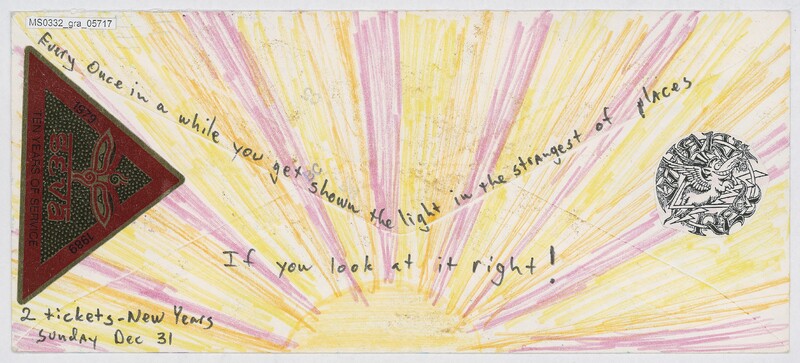 MS0332_gra_05717
Every Once in a while you get shown the light in the strangest of places
If you look at it right!
1979
TEN YEARS OF SERVICE
SEVA
1989
2 tickets-New Years
Sunday Dec 31